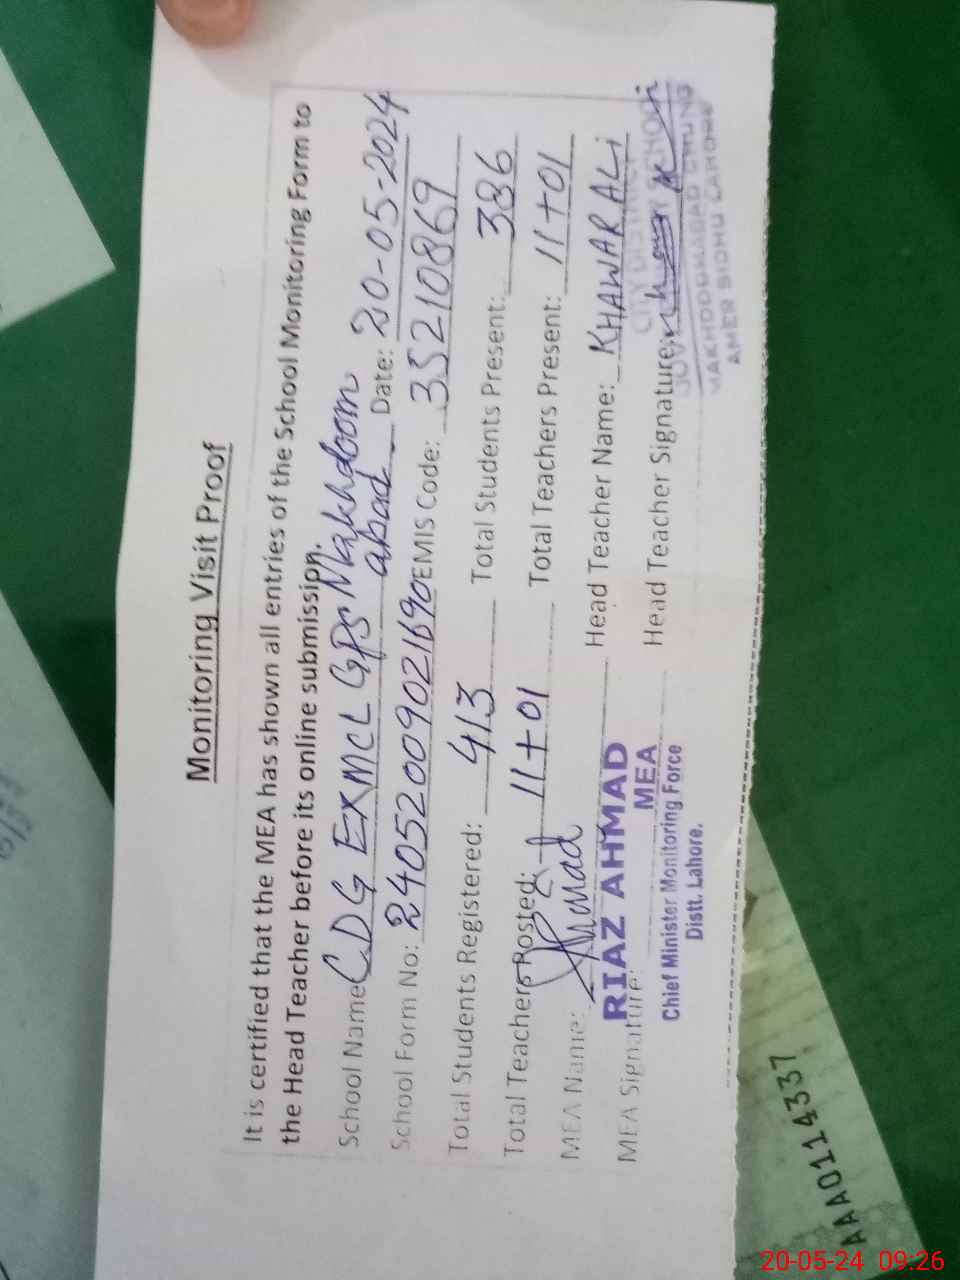 Monitoring Visit Proof
It is certified that the MEA has shown all entries of the School Monitoring Form to
the Head Teacher before its online submission.
School Name CDG EXMCL GPS Makhdoom abad Date: 20-05-2024
School Form No: 24052009021690 EMIS Code: 35210869
Total Students Registered: 413 Total Students Present: 386
Total Teachers Posted: 11+01 Total Teachers Present: 11+01
MEA Name: Head Teacher Name: KHAWAR ALi
RIAZ AHMAD
MEA
MEA Signature: Head Teacher Signature:
Chief Minister Monitoring Force
Distt. Lahore.
CITY DISTRICT
SCHOOL
MAKHDOOMABAD CHUNG
AMER SIDHU LAHORE
AAA0114337
20-05-24 09:26